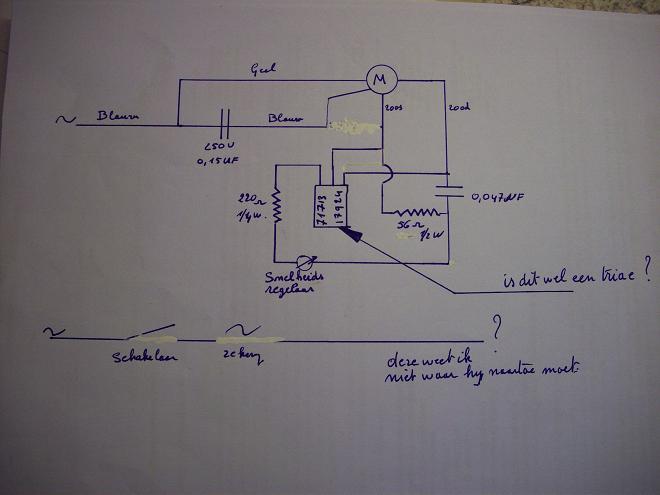 Geel
M
~ Blauw
Blauw
rood
rood
250V
0,15µF
220Ω
1/4W
71713
17924
0,047µF
56Ω
1/2W
Snelheids
regelaar
is dit wel een triac ?
~
Schakelaar
zekering
?
deze weet ik
niet waar hij naartoe moet.